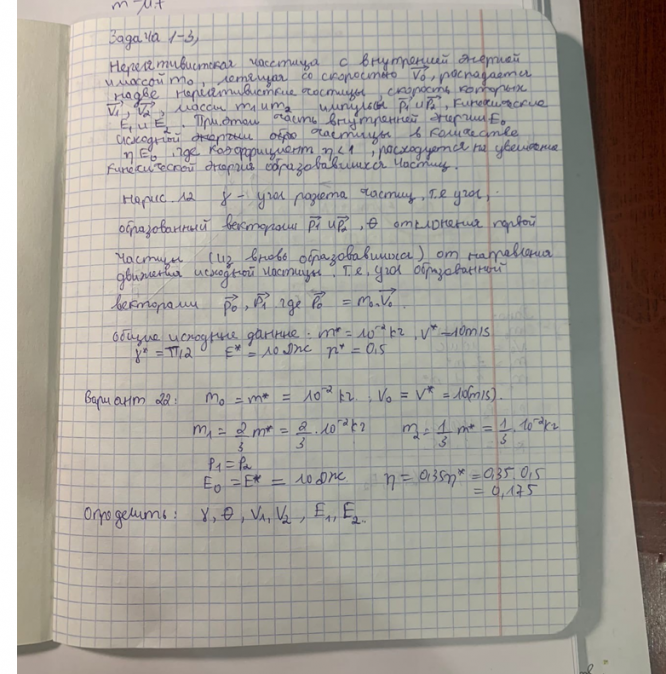 m
Задача 1-3,
Нерелятивистская частица с внутренней энергией
и массой m₀, летящая со скоростью V₀, распадается
на две нерелятивисткие частицы, скорость которых
V₁, V₂, массы m₁ и m₂ импульсы P₁ и P₂, кинетические
E₁ и E₂. При этом часть внутренней энергии E₀
исходной энергии обро частицы в количестве
ηE₀, где коэффициент η<1, расходуется на увеличение
кинетической энергии образовавшихся частиц.
На рис. 12 γ - угол разлета частиц, т.е угол,
образованный векторами P₁ и P₂, θ отклонения первой
частицы (из вновь образовавшихся) от направления
движения исходной частицы. Т.е, угол образованной
векторами P₀, P₁ где P₀ = m₀.V₀.
Общие исходные данные: m* = 10⁻² кг, V* = 10m/s
γ* = π/2 E* = 10 Дж η* = 0,5
Вариант 22: m₀ = m* = 10⁻² кг. V₀ = V* = 10(m/s).
m₁ = 2/3 m* = 2/3 · 10⁻² кг m₂ = 1/3 m* = 1/3 · 10⁻² кг
P₁ = P₂
E₀ = E* = 10 Дж η = 0,35η* = 0,35.0,5
= 0,175
Определить: γ, θ, V₁, V₂, E₁, E₂.